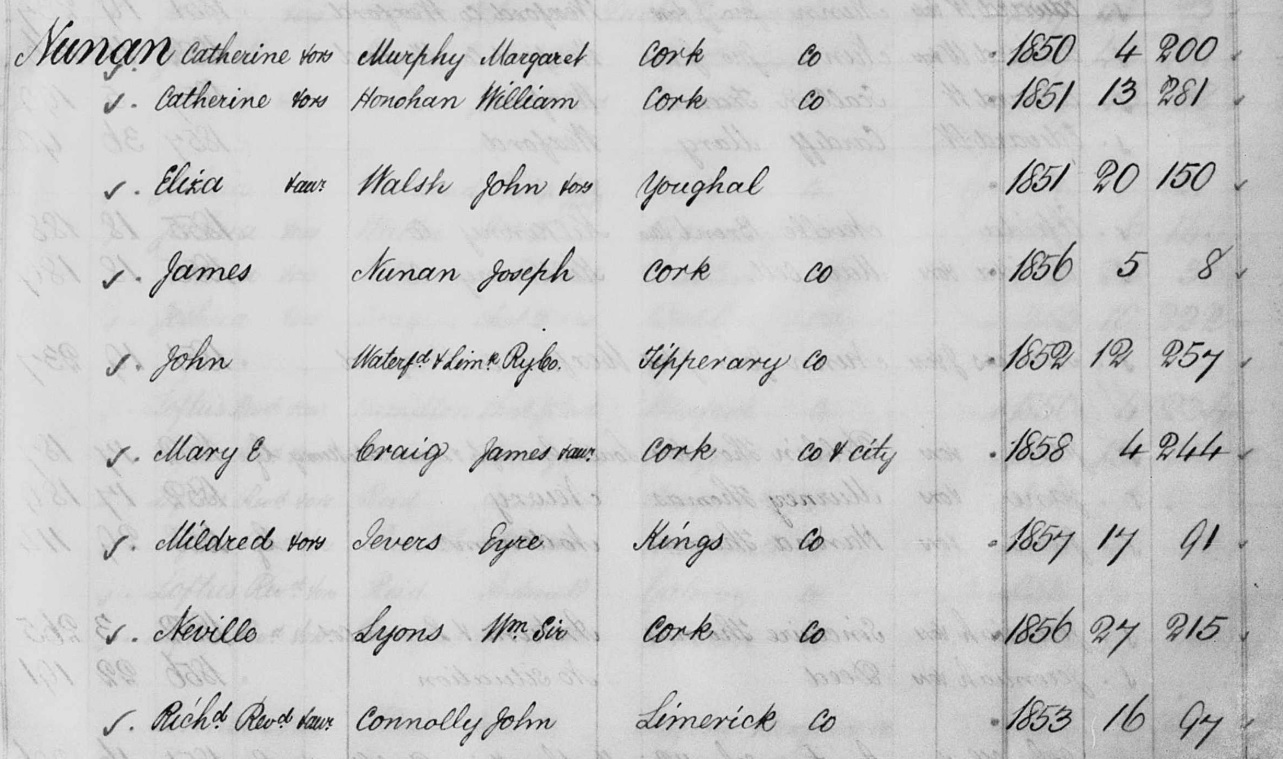 Nunan Catherine & ors Murphy Margaret Cork Co 1850 4 200
Catherine & ors Honohan William Cork Co 1851 13 281
Eliza & anr Walsh John & ors Youghal 1851 20 150
James Nunan Joseph Cork Co 1856 5 8
John Waterfd & Limk Ry Co. Tipperary Co 1852 12 257
Mary E Craig James & anr Cork Co & City 1858 4 244
Mildred & ors Ievers Eyre Kings Co 1857 17 91
Neville Lyons Wm Sir Cork Co 1856 27 215
Richd Revd & anr Connolly John Limerick Co 1853 16 97